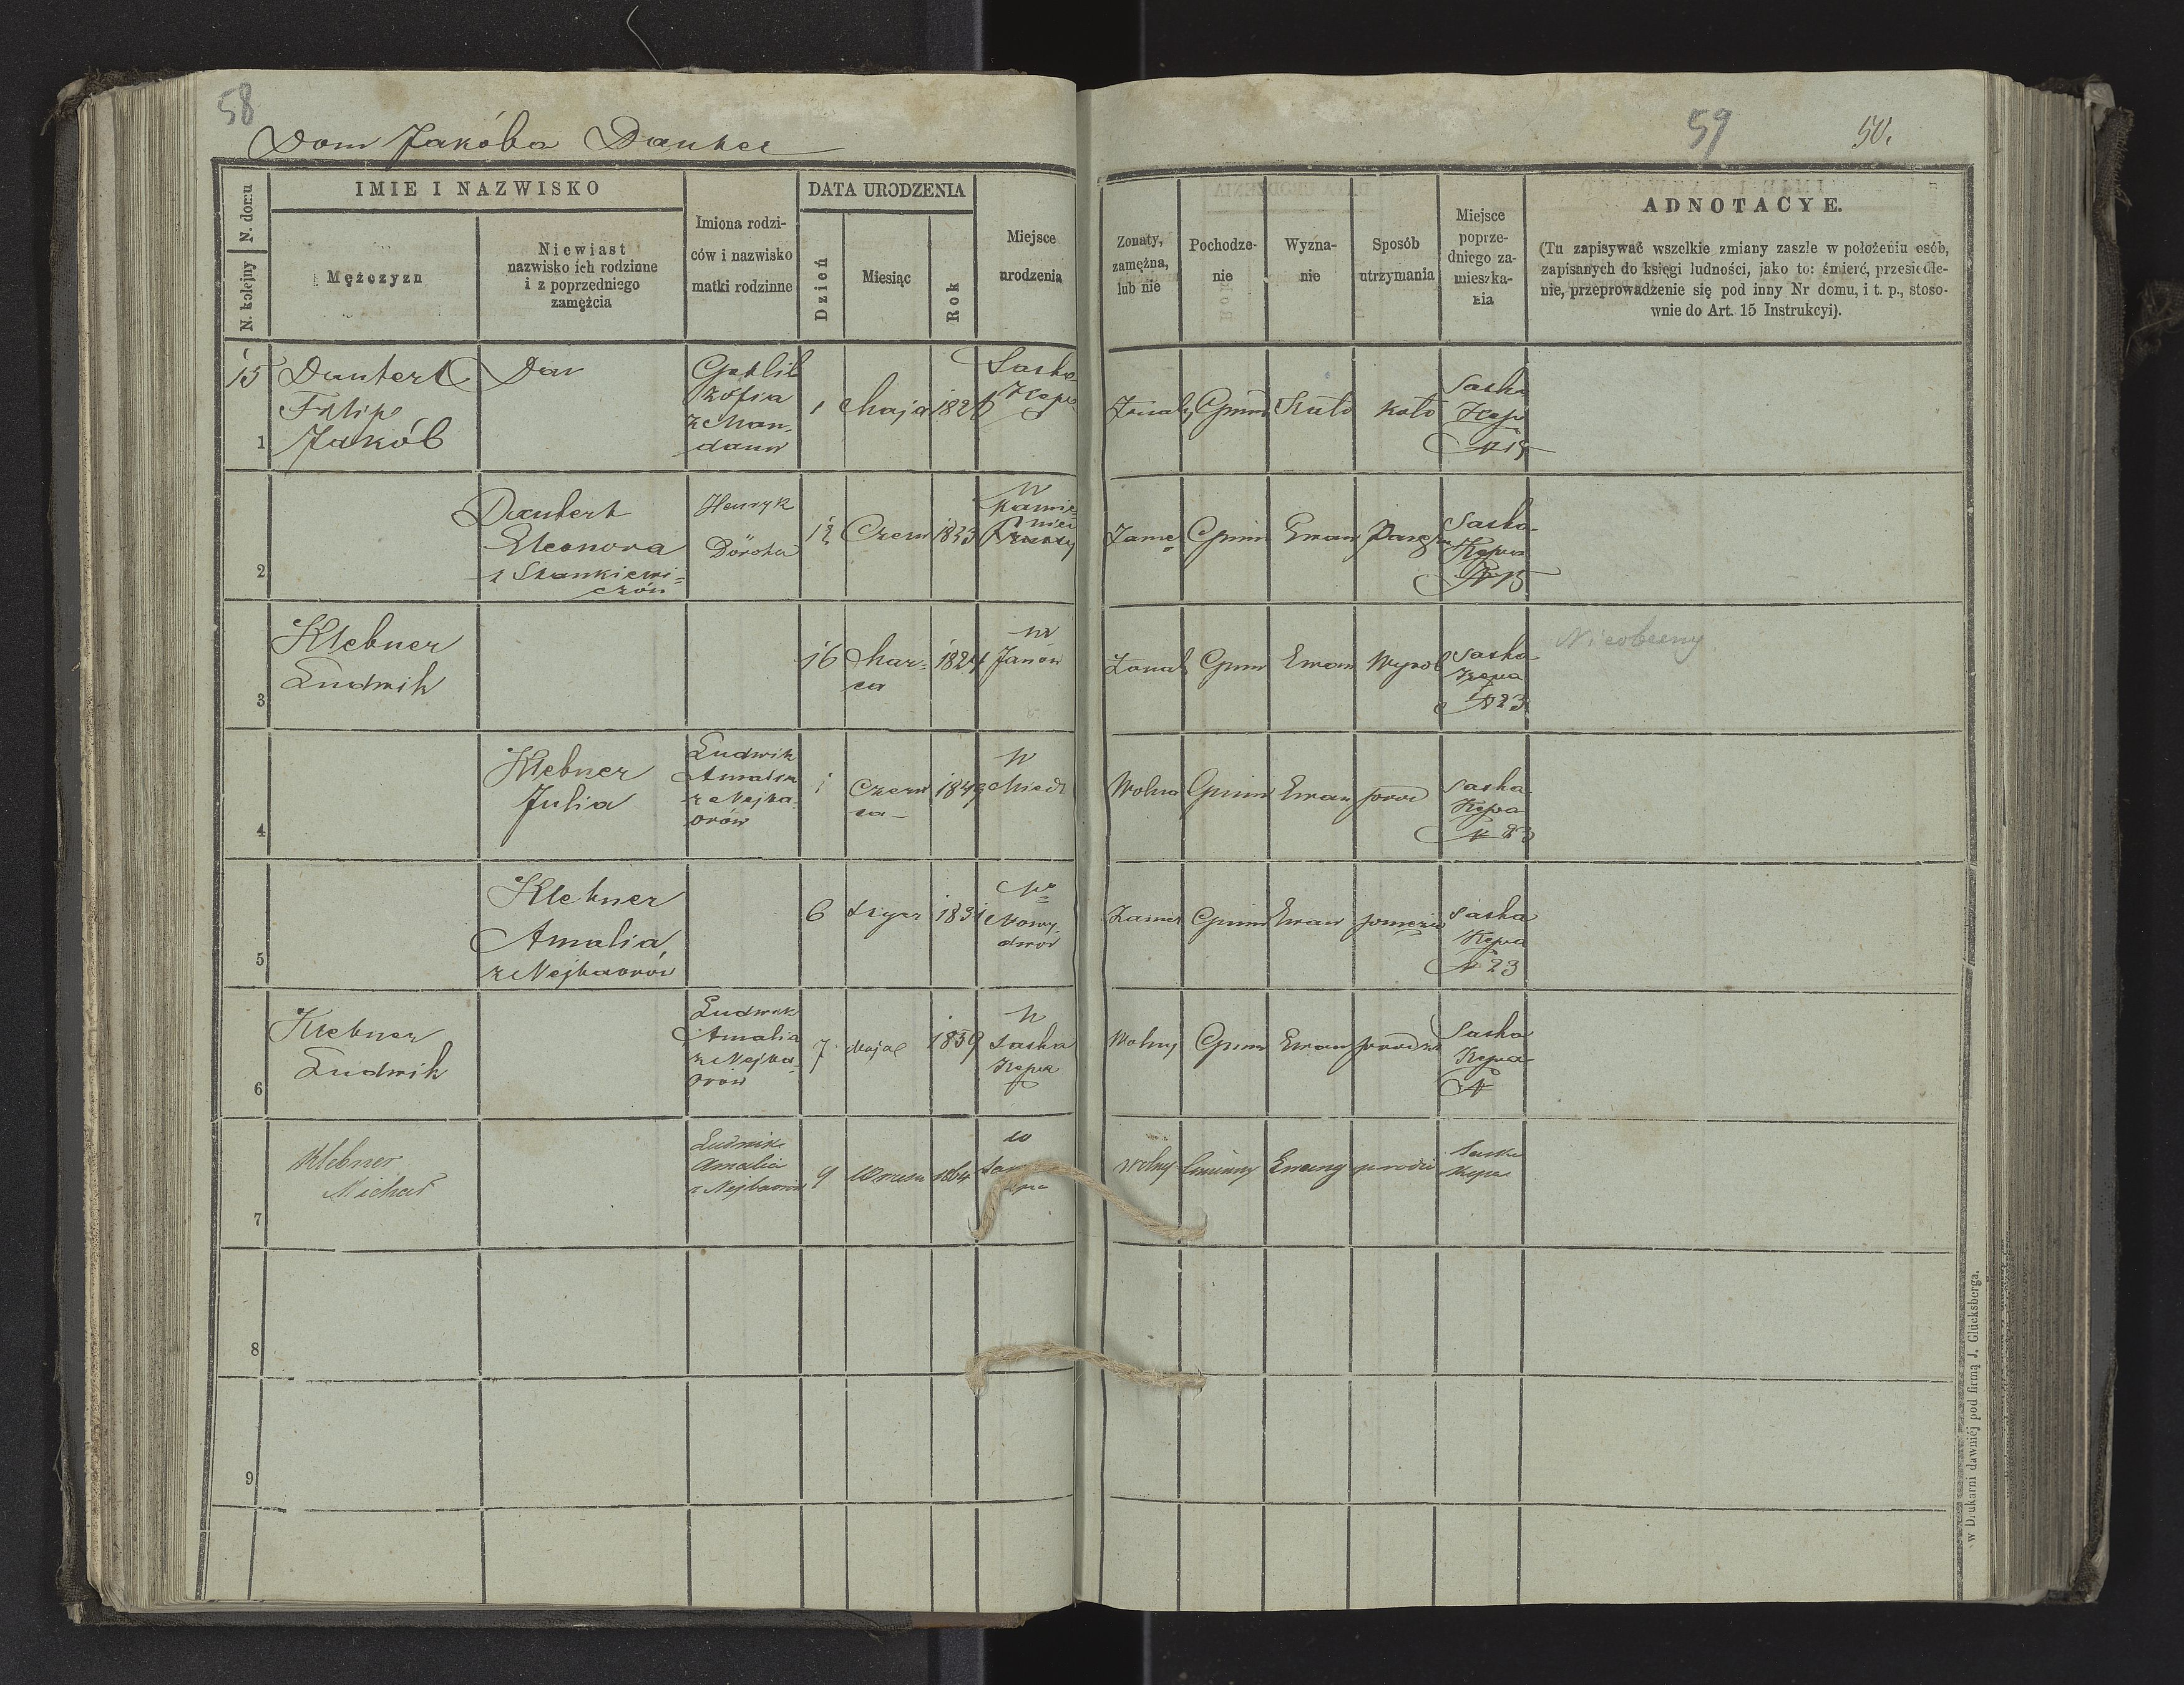 58
Dom Jakóba Dauter
59
50.
N. kolejny N. domu
IMIE I NAZWISKO
Mężczyzn
Niewiast
nazwisko ich rodzinne
i z poprzedniego
zamężcia
Imiona rodzi-
ców i nazwisko
matki rodzinne
DATA URODZENIA
Dzień
Miesiąc
Rok
Miejsce
urodzenia
Zonaty,
zamężna,
lub nie
Pochodze-
nie
Wyzna-
nie
Sposób
utrzymania
Miejsce
poprze-
dniego za-
mieszka-
nia
ADNOTACYE.
(Tu zapisywać wszelkie zmiany zaszłe w położeniu osób,
zapisanych do księgi ludności, jako to: śmierć, przesiedle-
nie, przeprowadzenie się pod inny Nr domu, i t. p., stoso-
wnie do Art. 15 Instrukcyi).
15
1
Dautert
Filip
Jakób
Gotlib
Zofia
z Man-
danw
1
Maja
Saska
Kępa
Gmin
Koło
Saska
Kępa
N 15
2
Dautert
Eleonora
z Stankiewi-
czów
Henryk
Dorota
12
Czerw
1833
w
Zamę
Gmin
Ewan
Saska
Kępa
N 15
3
Klebner
Ludwik
16
Mar-
ca
1824
w
Janów
Zonaty
Gmin
Ewan
Wyrob
Saska
Kępa
N 23
Nieobecny
4
Klebner
Julia
Ludwik
Amalia
z Nejba-
orów
1
Czerw
ca
1849
w
Miedz
Wolna
Gmin
Ewan
Saska
Kępa
N 23
5
Klebner
Amalia
z Nejbaorów
6
1831
w
Nowy
dwór
Zamęż
Gmin
Ewan
Saska
Kępa
N 23
6
Klebner
Ludwik
Ludwik
Amalia
z Nejba-
orów
7
Maja
1859
w
Saska
Kępa
Wolny
Gmin
Ewan
Saska
Kępa
N
7
Klebner
Michał
Ludwik
Amalia
z Nejbaorów
9
Wrzesn
1864
w
Wolny
Gminny
Ewang
Saska
Kępa
8
9
w Drukarni dawniéj pod firmą J. Glücksberga.